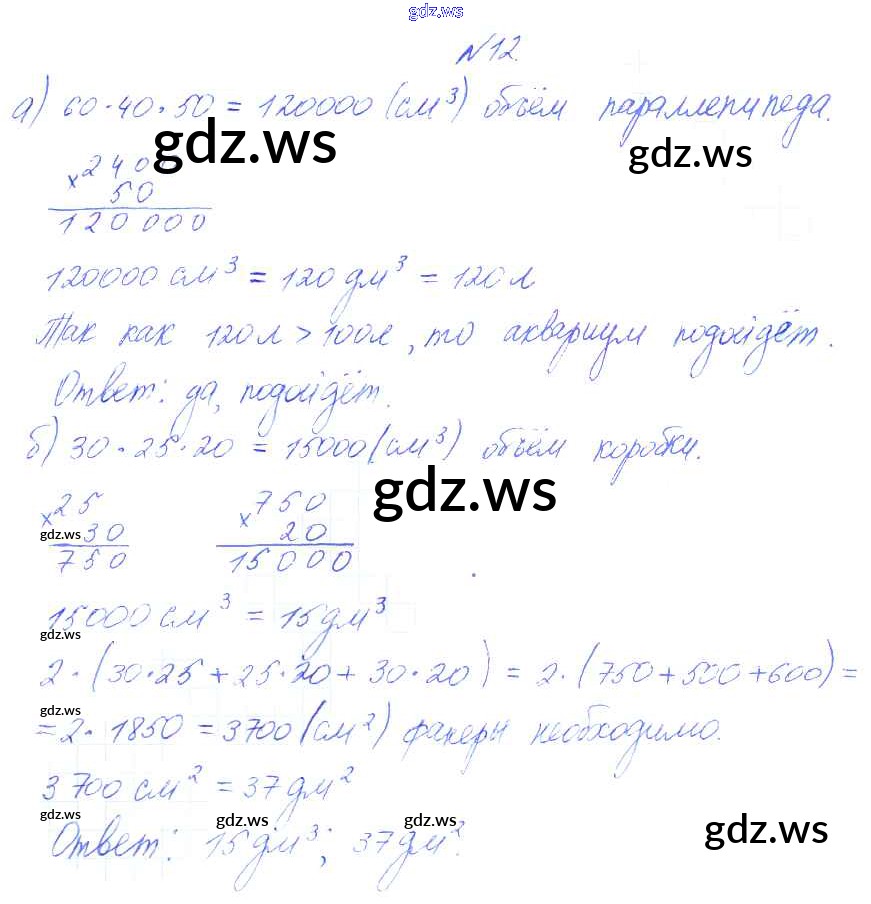 gdz.ws
№12.
а) 60·40·50 = 120000 (см³) объём параллепипеда.
gdz.ws gdz.ws
× 240
50
120 000
120000 см³ = 120 дм³ = 120 л
Так как 120л > 100л, то аквариум подойдёт.
Ответ: да, подойдёт.
б) 30·25·20 = 15000 (см³) объём коробки.
gdz.ws
× 25 × 750
gdz.ws 30 20
750 15000
15000 см³ = 15 дм³
gdz.ws
2·(30·25 + 25·20 + 30·20) = 2·(750+500+600) =
gdz.ws
= 2·1850 = 3700 (см²) фанеры необходимо.
3700 см² = 37 дм²
gdz.ws gdz.ws gdz.ws gdz.ws
Ответ: 15 дм³; 37 дм².